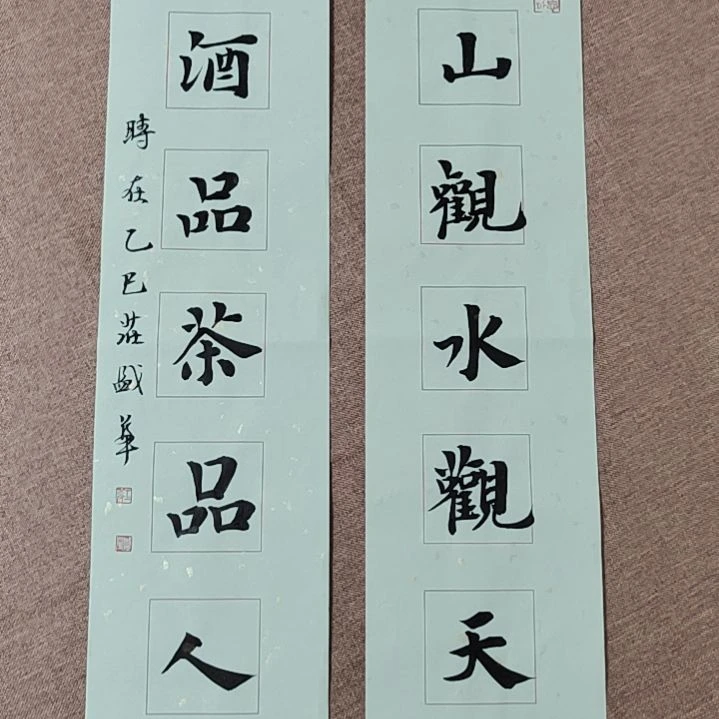 山觀水觀天
酒品茶品人
時在乙巳莊盛華